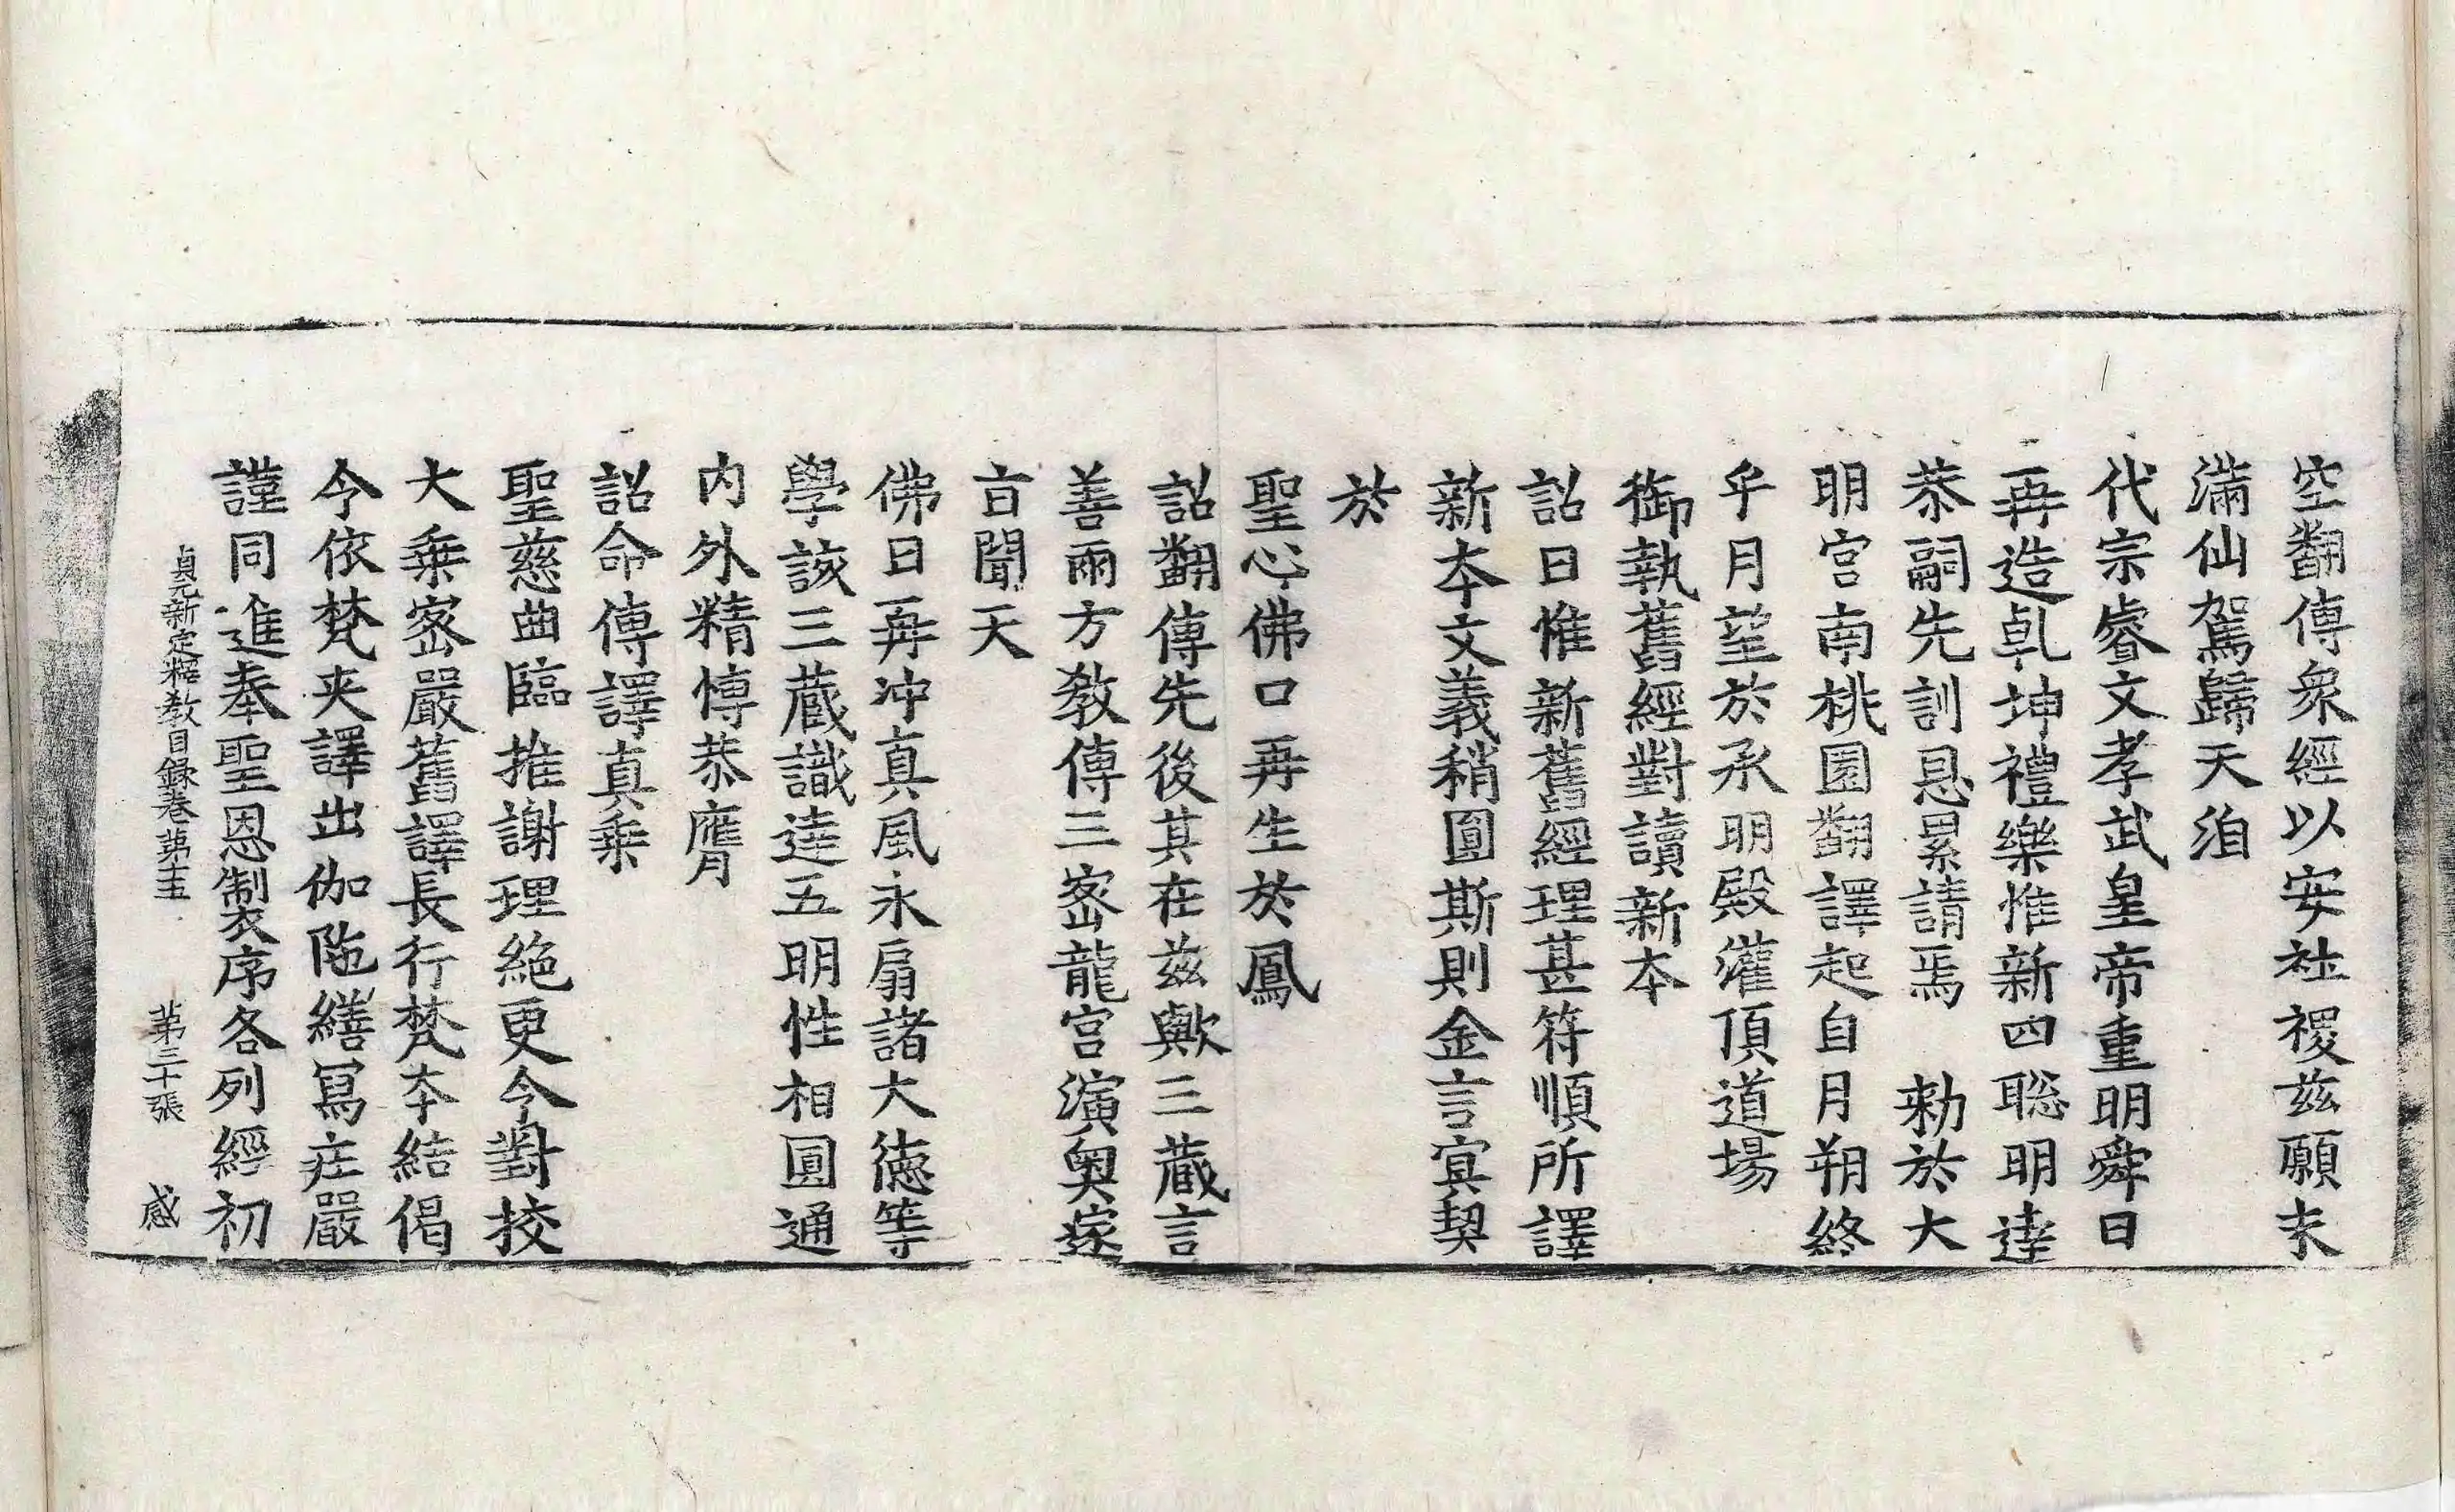 空翻傳衆經以安社稷兹願未
滿仙駕歸天洎
代宗睿文孝武皇帝重明舜日
再造乹坤禮樂惟新四聡明逹
恭嗣先訓恳累請焉 勑於大
明宫南桃園翻譯起自月朔終
乎月望於承明殿灌頂道場
御執舊經對讀新夲
詔曰惟新舊經理甚符順所譯
新夲文義稍圓斯則金言冥契
於
聖心佛口再生於鳳
詔翻傳先後其在兹歟三蔵言
善兩方教傳三宻龍宫演奥遂
㫖聞天
佛日再冲真風永扇諸大德等
學該三蔵識逹五明性相圓通
内外精愽恭膺
詔命傳譯真乗
聖慈曲臨推謝理絶更令對挍
大乗宻嚴舊譯長行梵夲結偈
今依梵夾譯出伽陁繕冩庄嚴
謹同進奉聖恩制衣序各列經初
貞元新定釋教目録卷苐十五 苐三十張 感